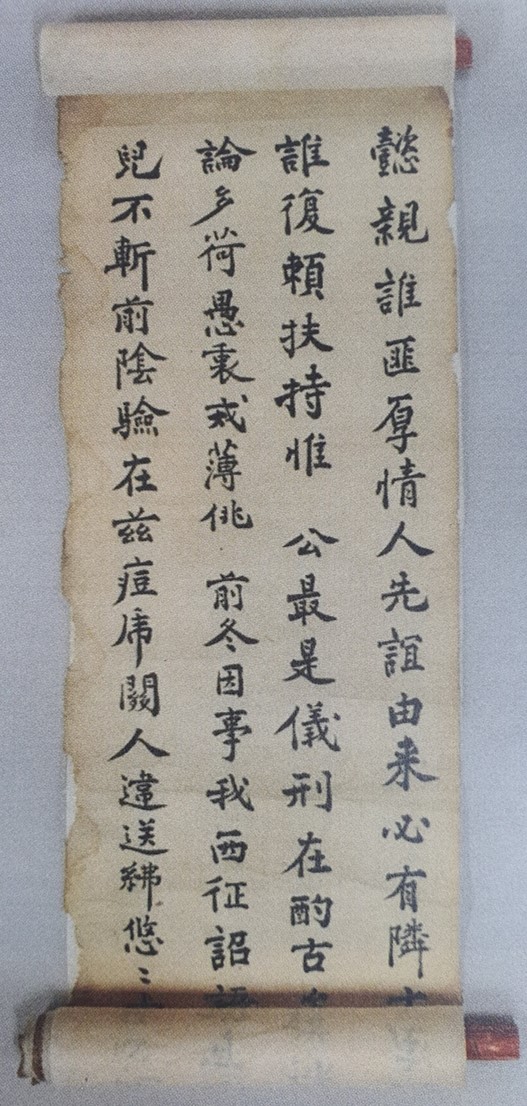 懿親誰匪厚情人先誼由来必有隣
誰復賴扶持惟 公最是儀刑在酌古
論多荷愚衷戒薄佻 前冬因事我西征詔語
兒不斬前陰驗在茲痘席闕人違送紼悠〻